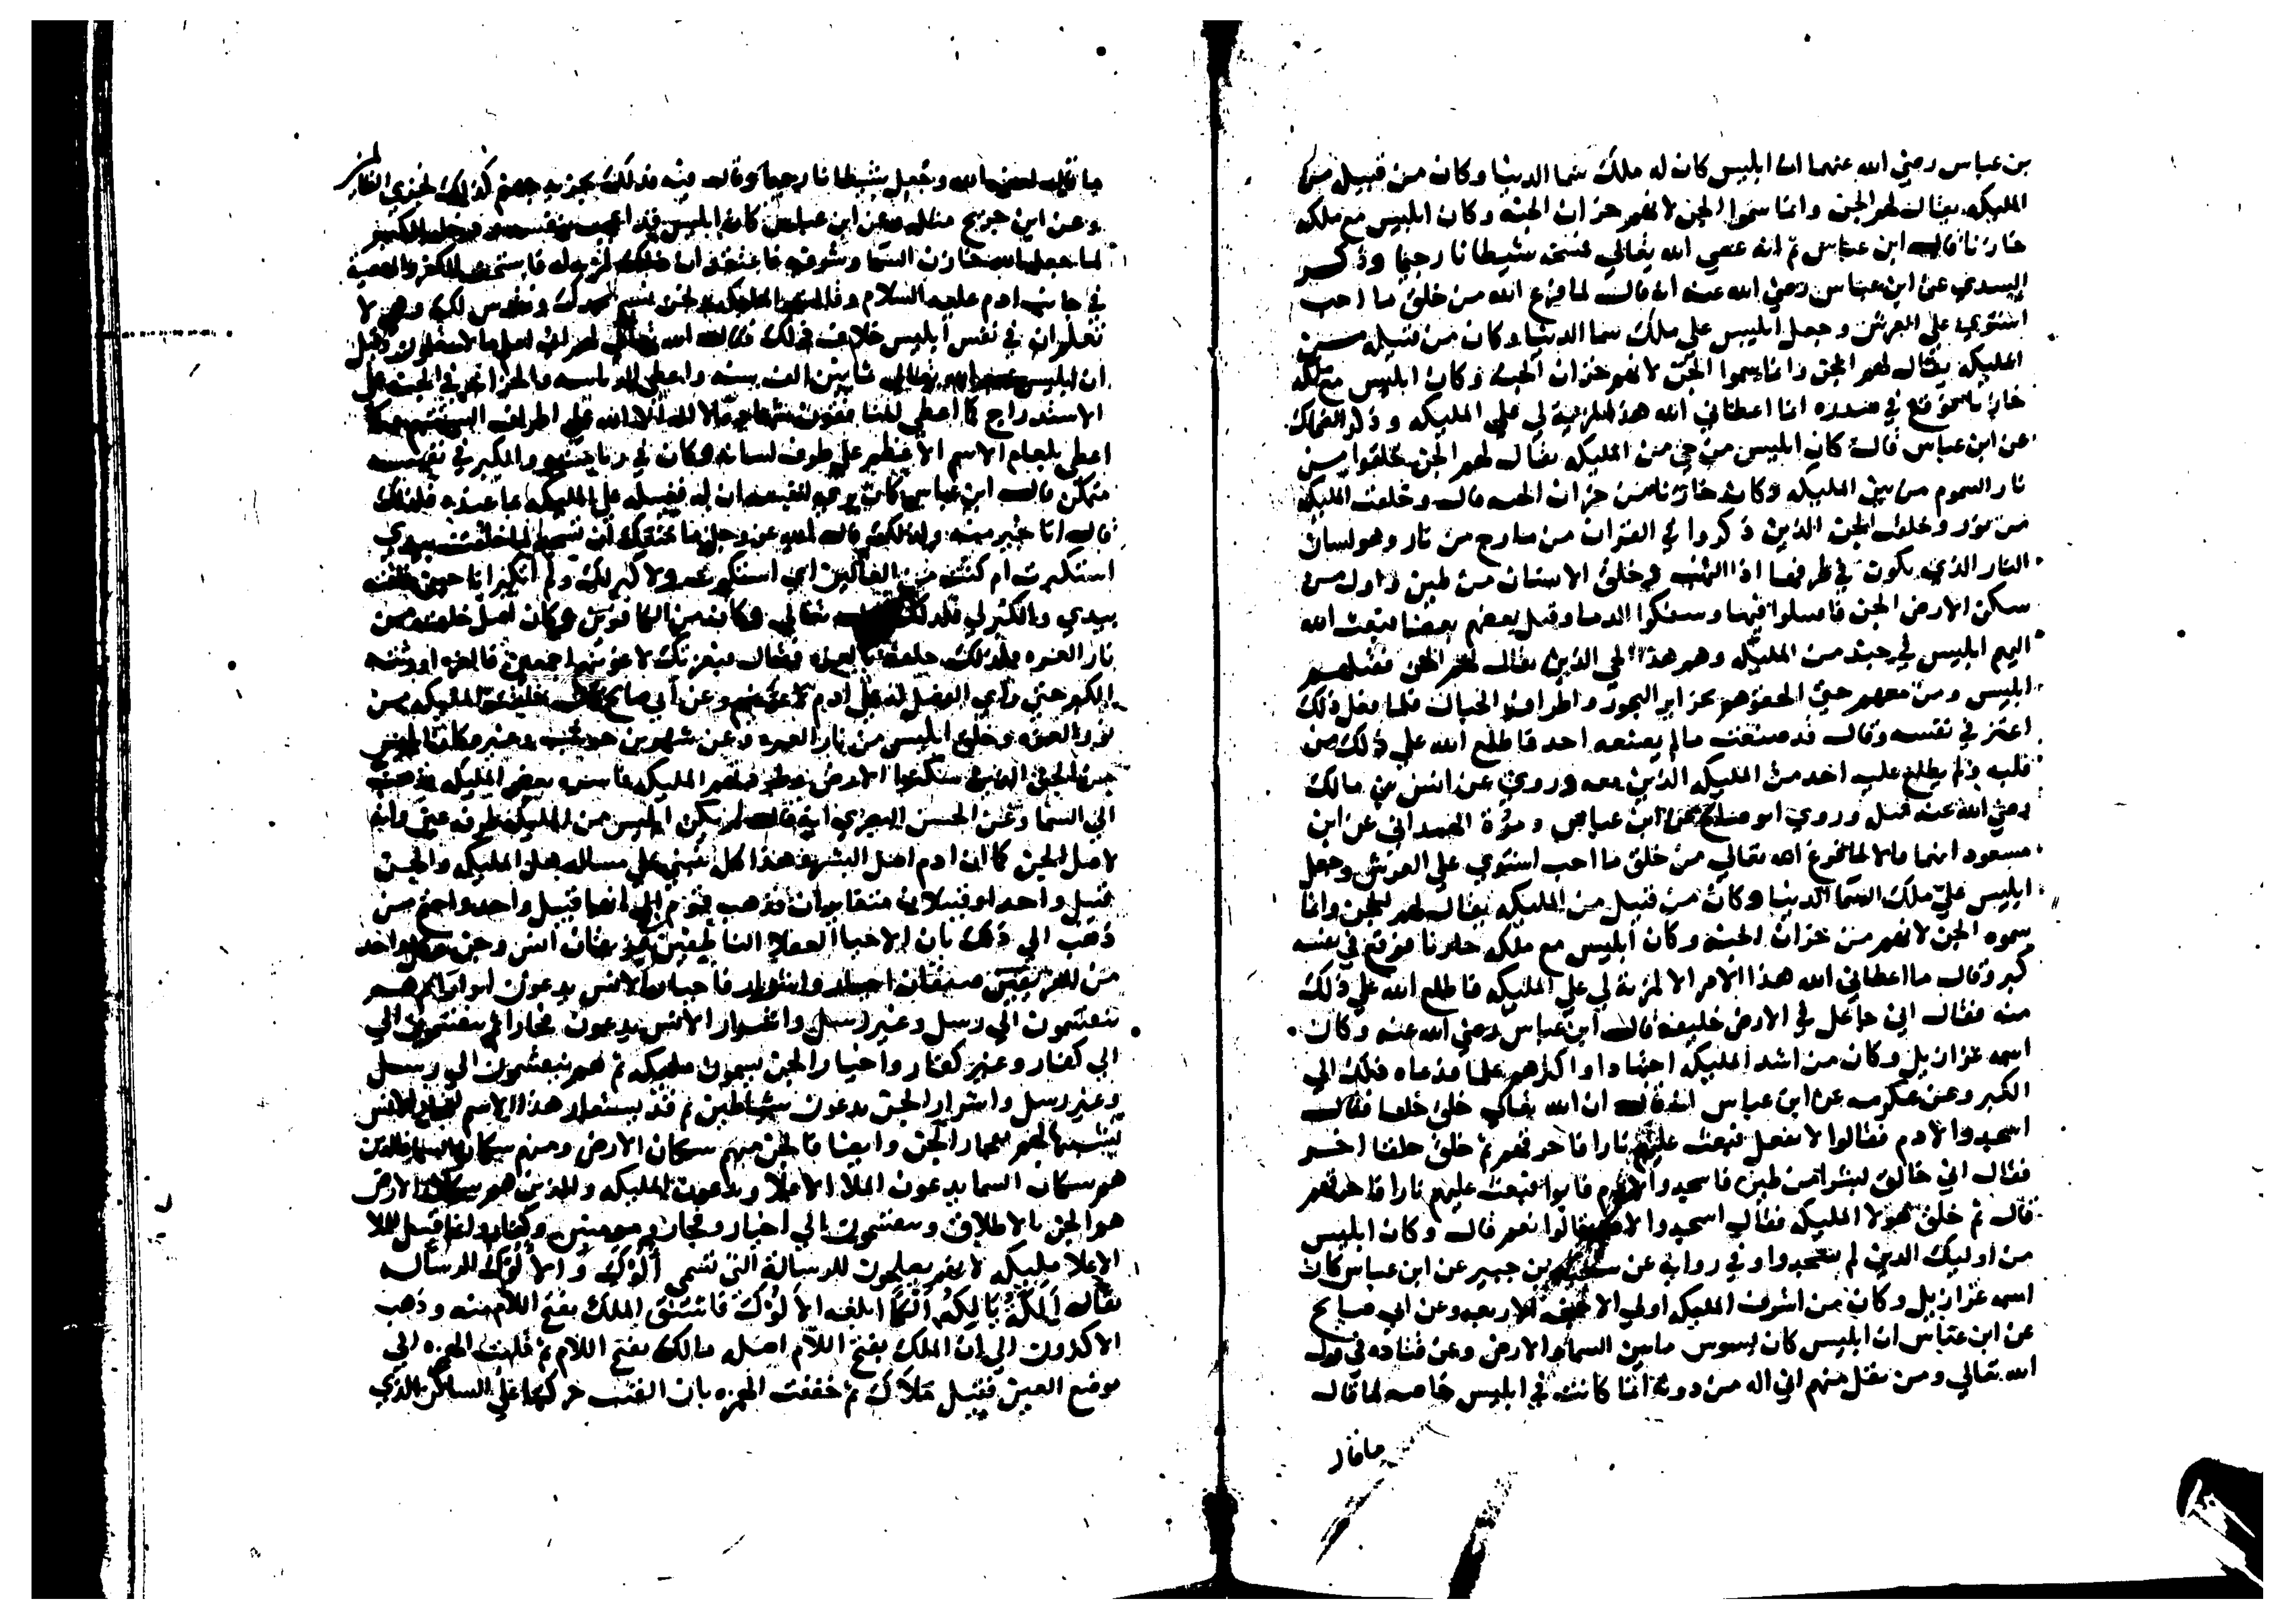 بن عباس رضي الله عنهما ان ابليس كان له ملك سما الدنيا وكان من قبيل من
المليكه يقال لهم الجن وانما سموا الجن لانهم خزان الجنه وكان ابليس مع ملكه
خازنا قال ابن عباس ثم انه عصي الله تعالي فمسخه شيطانا رجيما وذكر
السدي عن ابن عباس رضي الله عنه انه قال لما فرغ الله من خلق ما احب
استوي علي العرش وجعل ابليس علي ملك سما الدنيا وكان من قبيله من
المليكه يقال لهم الجن وانما سموا الجن لانهم خزان الجنه وكان ابليس مع ملكه
خازنا فوقع في صدره انما اعطاني الله هذا لمزية لي علي المليكه وذكر الضحاك
عن ابن عباس قال كان ابليس من حي من المليكه يقال لهم الجن خلقوا من
نار السموم من بين المليكه وكان خازنا من خزان الجنه قال وخلقت المليكه
من نور وخلقت الجن الذين ذكروا في القران من مارج من نار وهو لسان
النار الذي يكون في طرفها اذا التهبت وخلق الانسان من طين واول من
سكن الارض الجن فافسدوا فيها وسفكوا الدما وقتل بعضهم بعضا فبعث الله
اليهم ابليس في جند من المليكه وهم هذا الحي الذين يقال لهم الجن فقتلهم
ابليس ومن معهم حتي الحقوهم بجزاير البحور واطراف الجبال فلما فعل ذلك
اغتر في نفسه وقال قد صنعت مالم يصنعه احد فاطلع الله علي ذلك من
قلبه ولم يطلع عليه احد من المليكه الذين معه وروي عن انس بن مالك
رضي الله عنه مثله وروي ابو صالح عن ابن عباس ومرة الهمداني عن ابن
مسعود انهما قالا لما فرغ الله تعالي من خلق ما احب استوي علي العرش وجعل
ابليس علي ملك السما الدنيا وكان من قبيل من المليكه يقال لهم الجن وانما
سموه الجن لانهم من خزان الجنه وكان ابليس مع ملكه خازنا فوقع في نفسه
كبر وقال ما اعطاني الله هذا الامر الا لمزية لي علي المليكه فاطلع الله علي ذلك
منه فقال اني جاعل في الارض خليفه قال ابن عباس رضي الله عنه وكان
اسمه عزازيل وكان من اشد المليكه اجتهادا واكثرهم علما فدعاه ذلك الي
الكبر وعن عكرمه عن ابن عباس انه قال ان الله تعالي خلق خلقا فقال
اسجدوا لادم فقالوا لا نفعل فبعث عليهم نارا فاحرقهم ثم خلق خلقا اخر
فقال اني خالق بشرا من طين فاسجدوا لادم فابوا فبعث عليهم نارا فاحرقتهم
قال ثم خلق هولا المليكه فقال اسجدوا لادم فقالوا نعم قال وكان ابليس
من اوليك الدين لم يسجدوا وفي رواية عن سعيد بن جبير عن ابن عباس كان
اسمه عزازيل وكان من اشرف المليكه اولي الاجنحه الاربعه وعن ابي صالح
عن ابن عباس ان ابليس كان يسوس مابين السماء والارض وعن قتاده في قوله
الله تعالي ومن يقل منهم اني اله من دونه انما كانت في ابليس خاصه لما قال
ما قال
ما قال لعنه الله وجعل شيطانا رجيما وقال فيه فذلك نجزيه جهنم كذلك نجزي الظالمين
وعن ابن جريج مثله وعن ابن عباس كان ابليس قد اعجب بنفسه
لما جعل الله خازن السما وشرفه فاعتقد ان ذلك لمزية له فاستحق الكفر والمعصية
في جانب ادم عليه السلام ونحن نسبح بحمدك ونقدس لك وهم لا
يعلمون ان في نفس ابليس خلاف ذلك فقال الله تعالي لهم اني اعلم ما لا تعلمون وقيل
ان ابليس عبد الله تعالي ثمانين الف سنه واعطي الرياسه والخزانه في الجنه علي
الاستدراج كما اعطي المنافقون شهادة ان لا اله الا الله علي اطراف السنتهم وكما
اعطي بلعام الاسم الاعظم علي طرف لسانه وكان في رياسته والكبر في نفسه
متمكن قال ابن عباس كان يري لنفسه ان له فضيله علي المليكه بما عنده فلذلك
قال انا خير منه ولذلك قال الله عز وجل ما منعك ان تسجد لما خلقت بيدي
استكبرت ام كنت من العالين اي استكبرت ولا كبر لك ولم اتكبر انا حين خلقته
بيدي والكبر لي فلذلك قال تعالي وكان من الكافرين وكان اصل خلقته من
نار العزه فلذلك حلف بالعزه فقال فبعزتك لاغوينهم اجمعين فالعزه اورثته
الكبر حتي راي الفضل له علي ادم لا عن غيره وعن ابي صالح قال خلقت المليكه من
نور العزه وخلق ابليس من نار العزه وعن شهر بن حوشب وغيره كان ابليس
من الجن الذين سكنوا الارض وطردتهم المليكه فاسره بعض المليكه فذهب
الي السما وعن الحسن البصري انه قال لم يكن ابليس من المليكه طرفه عين وانه
لاصل الجن كما ان ادم اصل البشر وهذا كله ينبني علي مساله هل المليكه والجن
قبيل واحد او قبيلان متقابلان فذهب قوم الي انهما قبيل واحد واحتج من
ذهب الي ذلك بان الاحيا العقلا الناطقين فريقان انس وجن وكل واحد
من الفريقين صنفان اخيار واشرار فاخيار الانس يدعون ابرارا ثم هم
ينقسمون الي رسل وغير رسل واشرار الانس يدعون فجارا ثم ينقسمون الي
الي كفار وغير كفار واخيار الجن يسمون مليكه ثم هم ينقسمون الي رسل
وغير رسل واشرار الجن يدعون شياطين ثم قد يستعار هذا الاسم لفجار الانس
تشبيها لهم بفجار الجن وايضا فالجن منهم سكان الارض ومنهم سكان السما فالذين
هم سكان السما يدعون الملا الاعلا ويدعون المليكه والذين هم سكان الارض
هم الجن بالاطلاق وينقسمون الي اخيار وفجار ومومنين وكفار وانما قيل للملا
الاعلا مليكه لانهم يصلحون للرسالة التي تسمي ألوك والالوك الرساله
يقال ألكه يالكه اي ابلغه الالوك فاشتق الملك بفتح اللام منه وذهب
الاكثرون الي ان الملك بفتح اللام اصله مالك بفتح اللام ثم قلبت الهمزه الي
موضع العين فقيل ملأك ثم خففت الهمزه بان القيت حركتها علي الساكن الذي